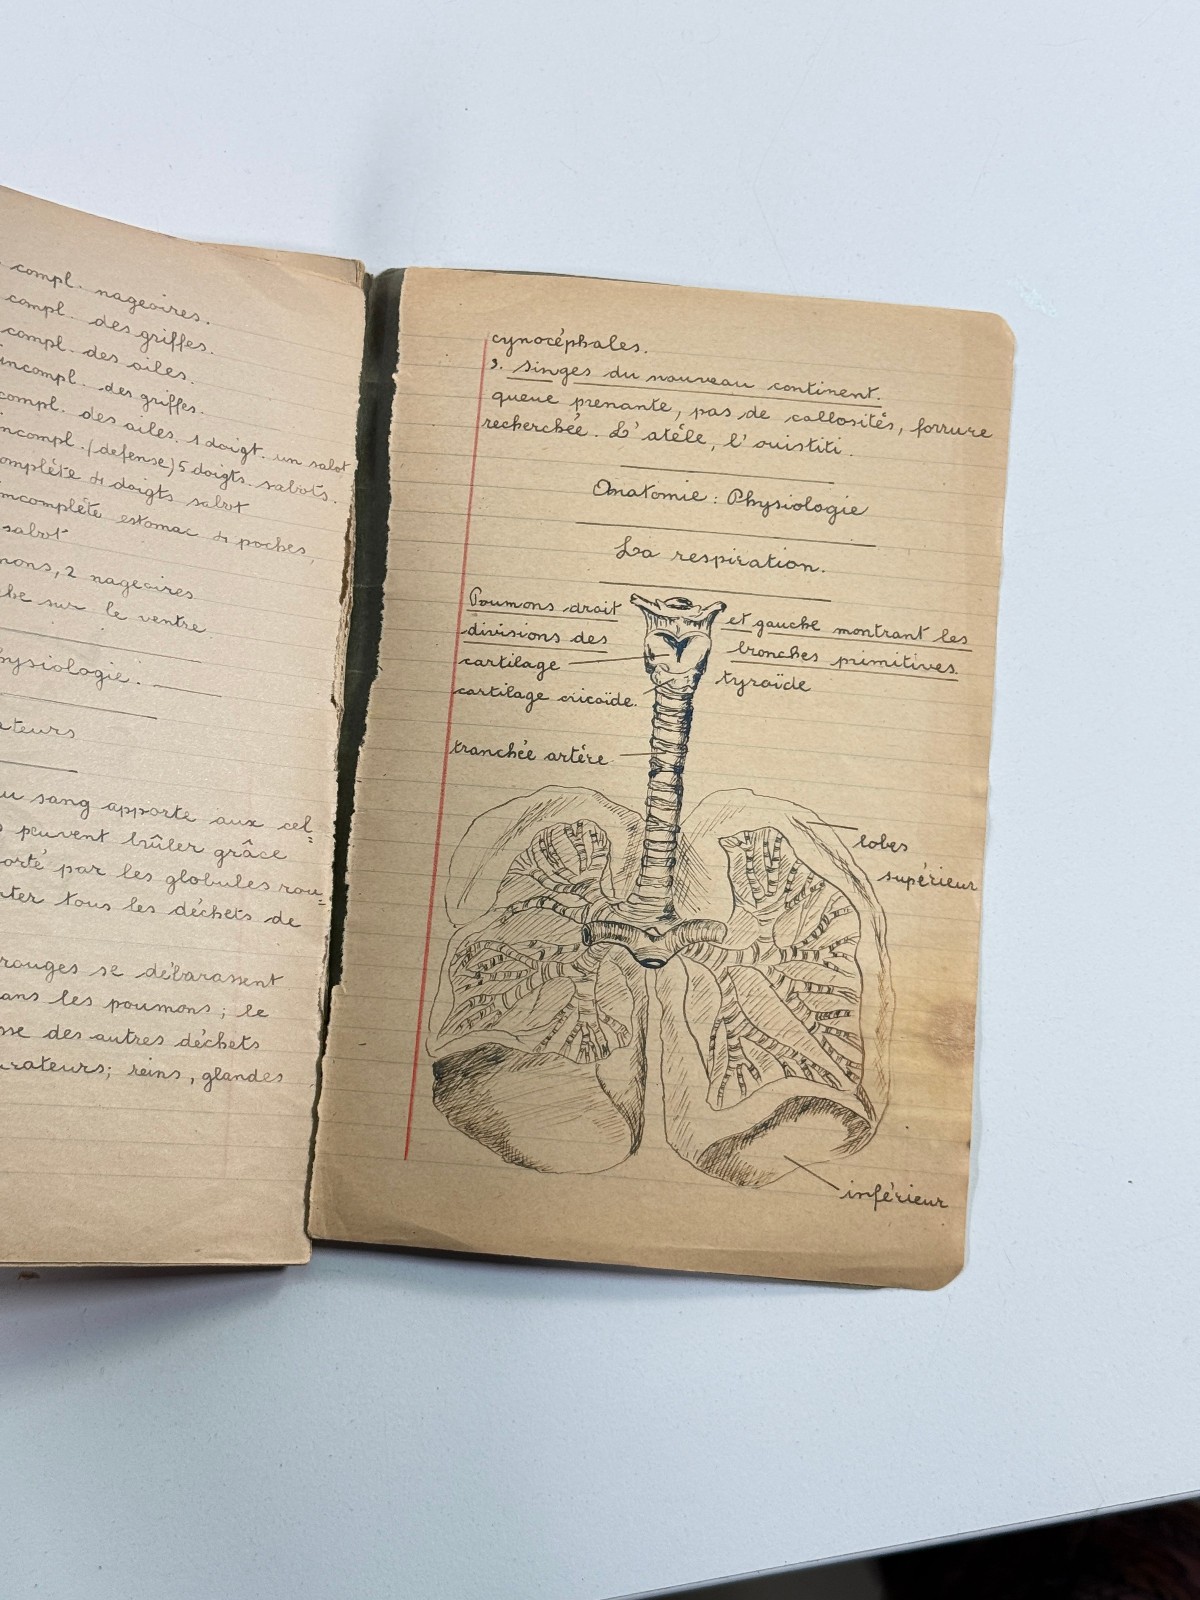 compl. nageoires.
compl. des griffes.
compl. des ailes.
incompl. des griffes.
compl. des ailes. 1 doigt. un sabot
incompl. (defense) 5 doigts. sabots.
omplète 4 doigts sabot
incomplète estomac 4 poches,
sabot
mons, 2 nageoires
che sur le ventre
hysiologie.
ateurs
u sang apporte aux cel=
s peuvent brûler grâce
orté par les globules rou=
nter tous les déchets de
rouges se débarassent
ans les poumons; le
sse des autres déchets
urateurs; reins, glandes
cynocéphales.
3. singes du nouveau continent.
queue prenante, pas de callosités, forrure
recherchée. L'atéle, l'ouistiti.
Anatomie: Physiologie
La respiration.
Poumons droit et gauche montrant les
divisions des bronches primitives.
cartilage tyroïde
cartilage cricoïde.
tranchée artére
lobes
supérieur
inférieur